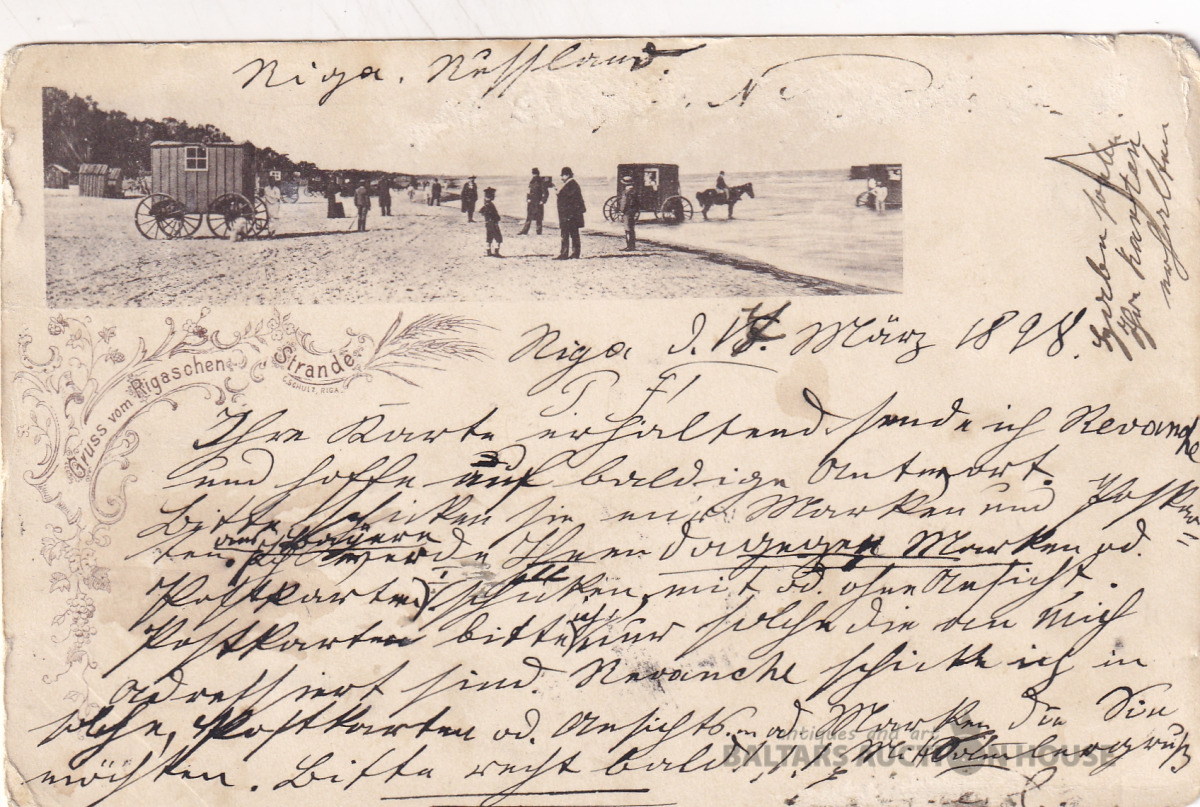 Riga. Russland.
Haben solche
Ihre Karten
erhalten
Gruss vom Rigaschen Strande
E. SCHULT, RIGA.
Riga d. März 1898.
P. P.
Ihre Karte erhaltend sende ich Revanche
und hoffe auf baldige Antwort.
Bitte schicken Sie mir Marken und Postkar=
ten. Ich werde Ihnen dagegen Marken od.
Postkarten schicken, mit od. ohne Ansicht.
Postkarten bitte nur solche die an mich
adressiert sind. Revanche schicke ich in
solche, Postkarten od. Ansichts. od. Marken die Sie
möchten. Bitte recht bald. Mit
antiques and art
BALTARS AUCTION HOUSE